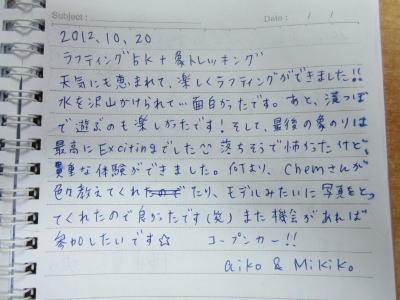 Subject: Date: / /
2012.10.20
ラフティング5K+象トレッキング
天気にも恵まれて、楽しくラフティングができました!!
水を沢山かけられて…面白かったです。あと、漢っぽ
で遊ぶのも楽しかったです!そして、最後の象のりは
最高にExcitingでした 落ちそうで怖かったけど、
貴重な体験ができました。何より、Chemさんが
色々教えてくれたり、モデルみたいに写真をとっ
てくれたので良かったです(笑) また機会があれば
参加したいです☆ コープンカー!!
aiko & Mikiko